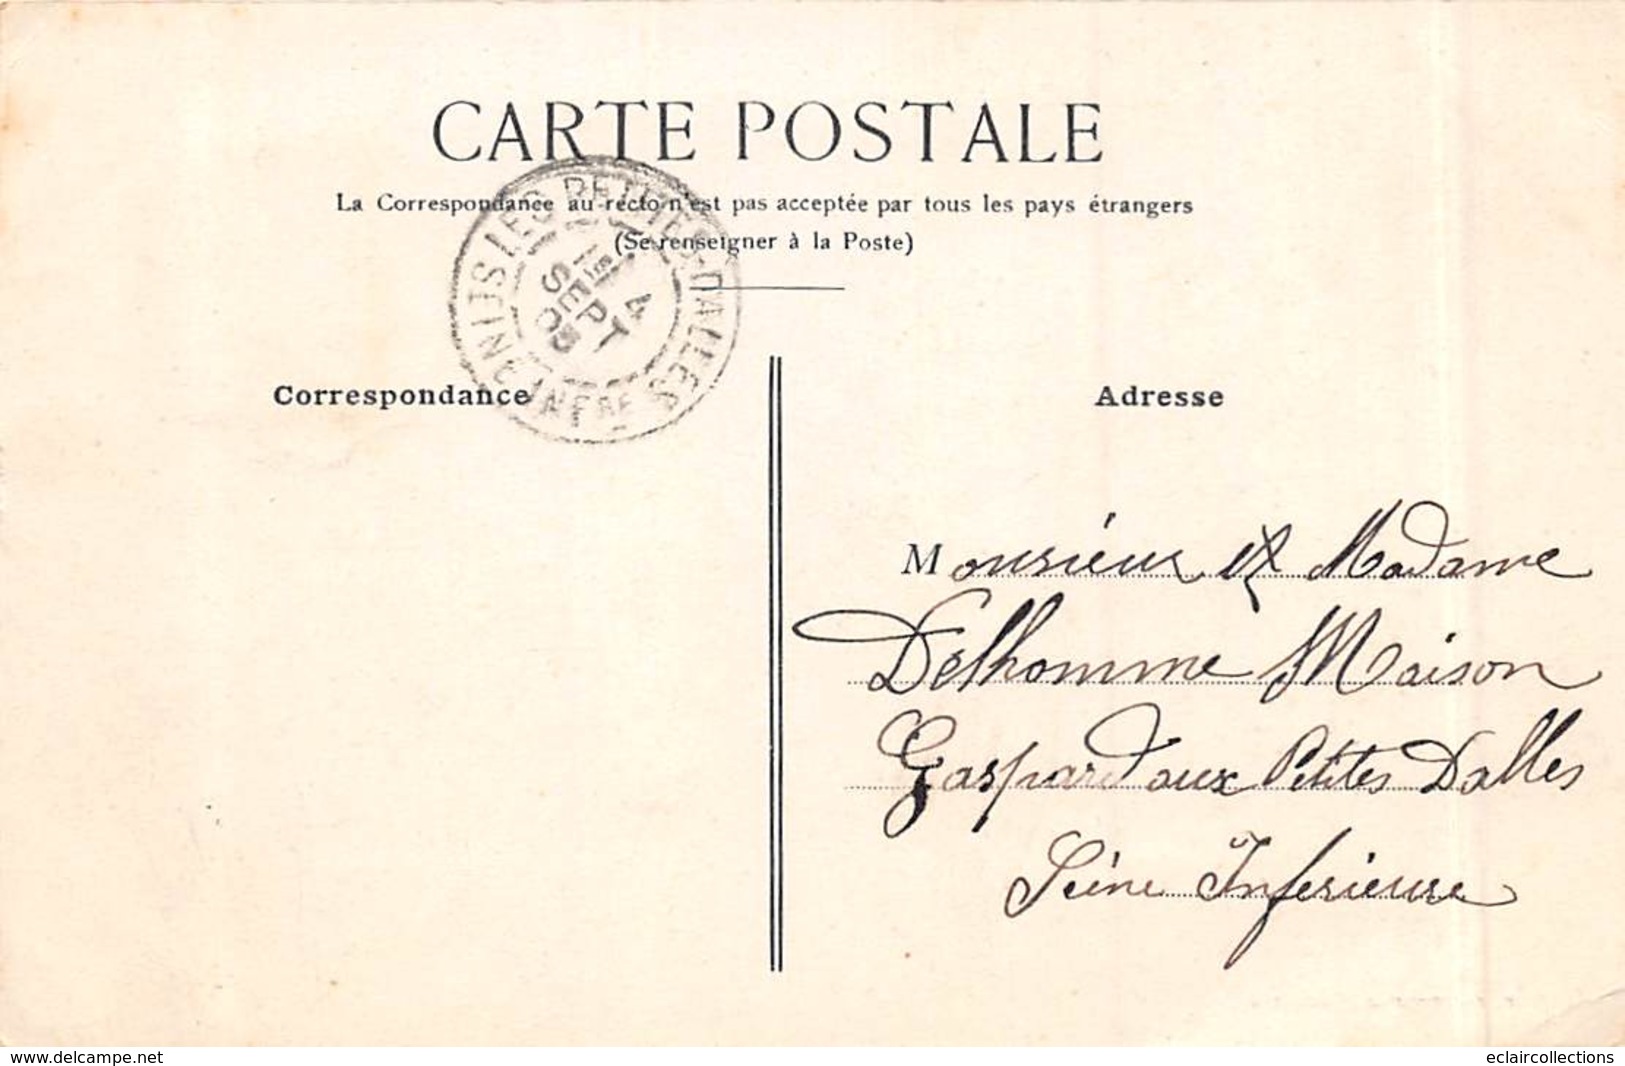 CARTE POSTALE
La Correspondance au recto n'est pas acceptée par tous les pays étrangers
(Se renseigner à la Poste)
LES PETITES-DALLES
4
SEPT
05
SEINE INFRE
Correspondance
Adresse
Monsieur et Madame
Delhomme Maison
Gaspard aux Petites Dalles
Seine Inferieure
www.delcampe.net
eclaircollections